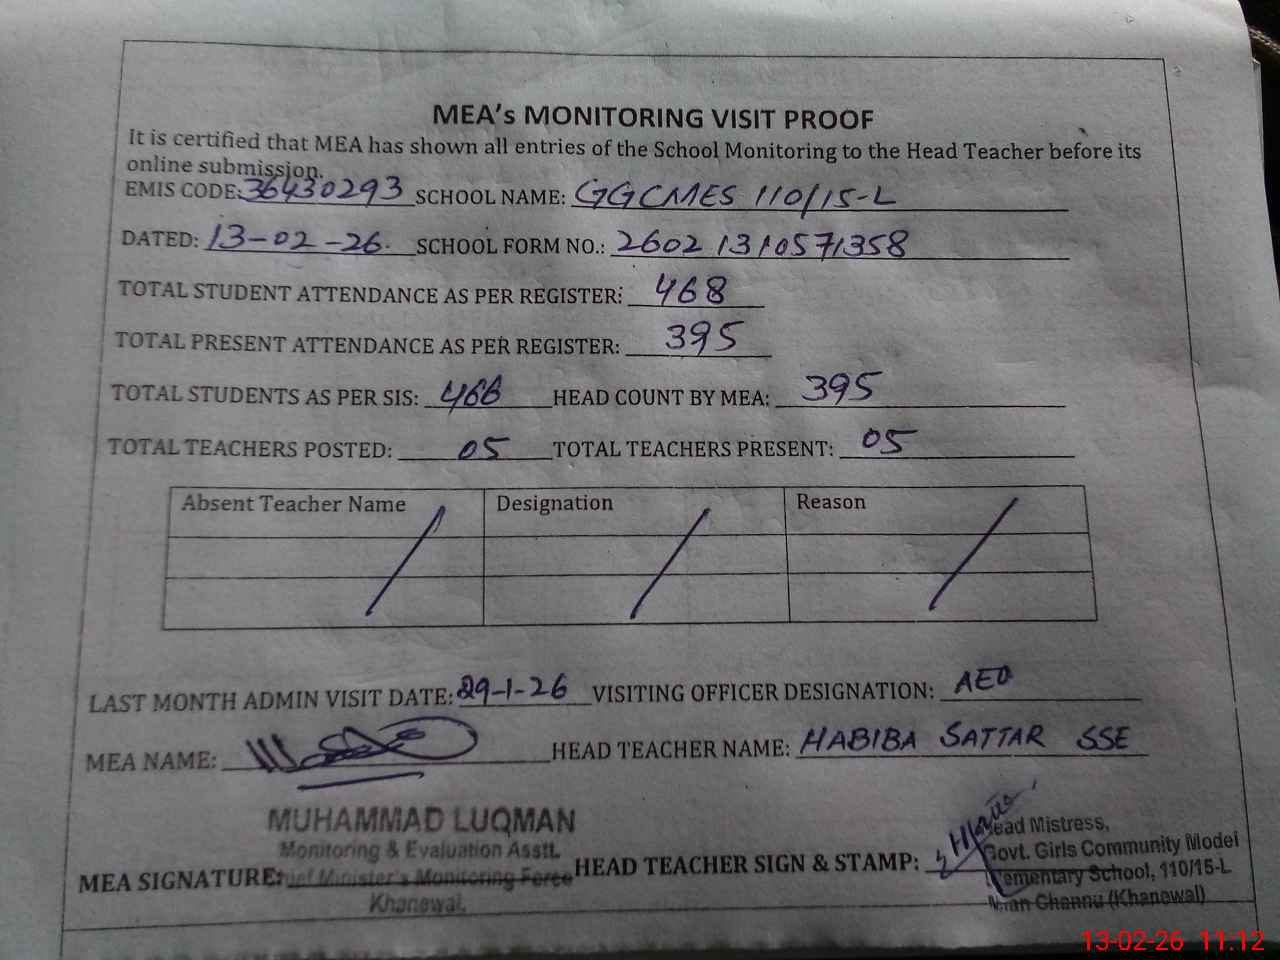 MEA's MONITORING VISIT PROOF
It is certified that MEA has shown all entries of the School Monitoring to the Head Teacher before its
online submission.
EMIS CODE: 36430293 SCHOOL NAME: GGCMES 110/15-L
DATED: 13-02-26. SCHOOL FORM NO.: 2602 131057 1358
TOTAL STUDENT ATTENDANCE AS PER REGISTER: 468
TOTAL PRESENT ATTENDANCE AS PER REGISTER: 395
TOTAL STUDENTS AS PER SIS: 466 HEAD COUNT BY MEA: 395
TOTAL TEACHERS POSTED: 05 TOTAL TEACHERS PRESENT: 05
Absent Teacher Name Designation Reason
LAST MONTH ADMIN VISIT DATE: 29-1-26 VISITING OFFICER DESIGNATION: AEO
MEA NAME: HEAD TEACHER NAME: HABIBA SATTAR SSE
MUHAMMAD LUQMAN
Monitoring & Evaluation Asstt.
MEA SIGNATURE: Chief Minister's Monitoring Force
Khanewal.
HEAD TEACHER SIGN & STAMP:
Head Mistress,
Govt. Girls Community Model
Elementary School, 110/15-L
Mian Channu (Khanewal)
13-02-26 11:12